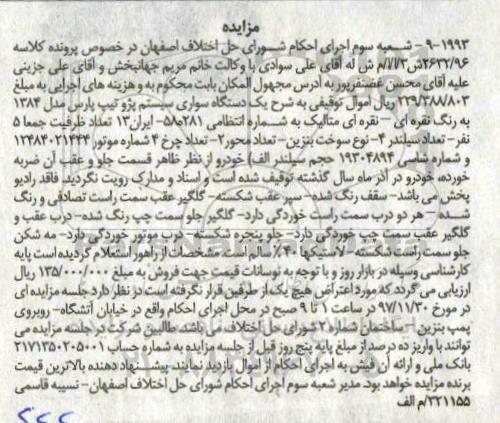 مزایده
۹-۱۹۹۳ – شعبه سوم اجرای احکام شورای حل اختلاف اصفهان در خصوص پرونده کلاسه
۲۶۳۲/۹۶ش/۳/ا/م ش له آقای علی سوادی با وکالت خانم مریم جهانبخش و آقای علی جزینی
علیه آقای محسن غضنفرپور به آدرس مجهول المکان بابت محکوم به و هزینه های اجرایی به مبلغ
۲۲۹/۳۸۸/۸۰۳ ریال اموال توقیفی به شرح یک دستگاه سواری سیستم پژو تیپ پارس مدل ۱۳۸۴
به رنگ نقره ای – نقره ای متالیک به شماره انتظامی ۲۸۱ص۵۸– ایران۱۳ تعداد ظرفیت جمعا ۵
نفر– تعداد سیلندر ۴– نوع سوخت بنزین– تعداد محور۲– تعداد چرخ ۴ شماره موتور ۱۲۴۸۴۰۲۱۴۴۴
و شماره شاسی ۱۹۳۰۴۸۹۴ حجم سیلندر الف) خودرو از نظر ظاهر قسمت جلو و عقب آن ضربه
خورده، خودرو در آذر ماه سال گذشته توقیف شده است و اسناد و مدارک رویت نگردید. فاقد رادیو
پخش می باشد– سقف رنگ شده– سپر عقب شکسته– گلگیر عقب سمت راست تصادفی و رنگ
شده – هر دو درب سمت راست خوردگی دارد– گلگیر جلو سمت چپ رنگ شده– درب عقب و
گلگیر عقب سمت چپ خوردگی دارد– جلو پنجره شکسته– درب موتور خوردگی دارد– مه شکن
جلو سمت راست شکسته– لاستیکها ۴۰٪ سالم است. مشخصات از راهور استعلام گردیده است پایه
کارشناسی وسیله در بازار روز و با توجه به نوسانات قیمت جهت فروش به مبلغ ۱۳۵/۰۰۰/۰۰۰ ریال
ارزیابی می گردد که مورد اعتراض هیچ یک از طرفین قرار نگرفته است در نظر دارد جلسه مزایده ای
در مورخ ۹۷/۱۱/۳۰ در ساعت ۱ تا ۹ صبح در محل اجرای احکام واقع در خیابان آتشگاه– روبروی
پمپ بنزین – ساختمان شماره ۲ شورای حل اختلاف می باشد. طالبین شرکت در جلسه مزایده می
توانند با واریز ده درصد از مبلغ پایه پنج روز قبل از جلسه مزایده به شماره حساب ۲۱۷۱۳۵۰۲۰۵۰۰۱
بانک ملی و ارائه آن فیش به اجرای احکام از اموال بازدید نمایند. پیشنهاد دهنده بالاترین قیمت
برنده مزایده خواهد بود. مدیر شعبه سوم اجرای احکام شورای حل اختلاف اصفهان– نسیبه قاسمی
۳۲۱۱۵۵/م الف